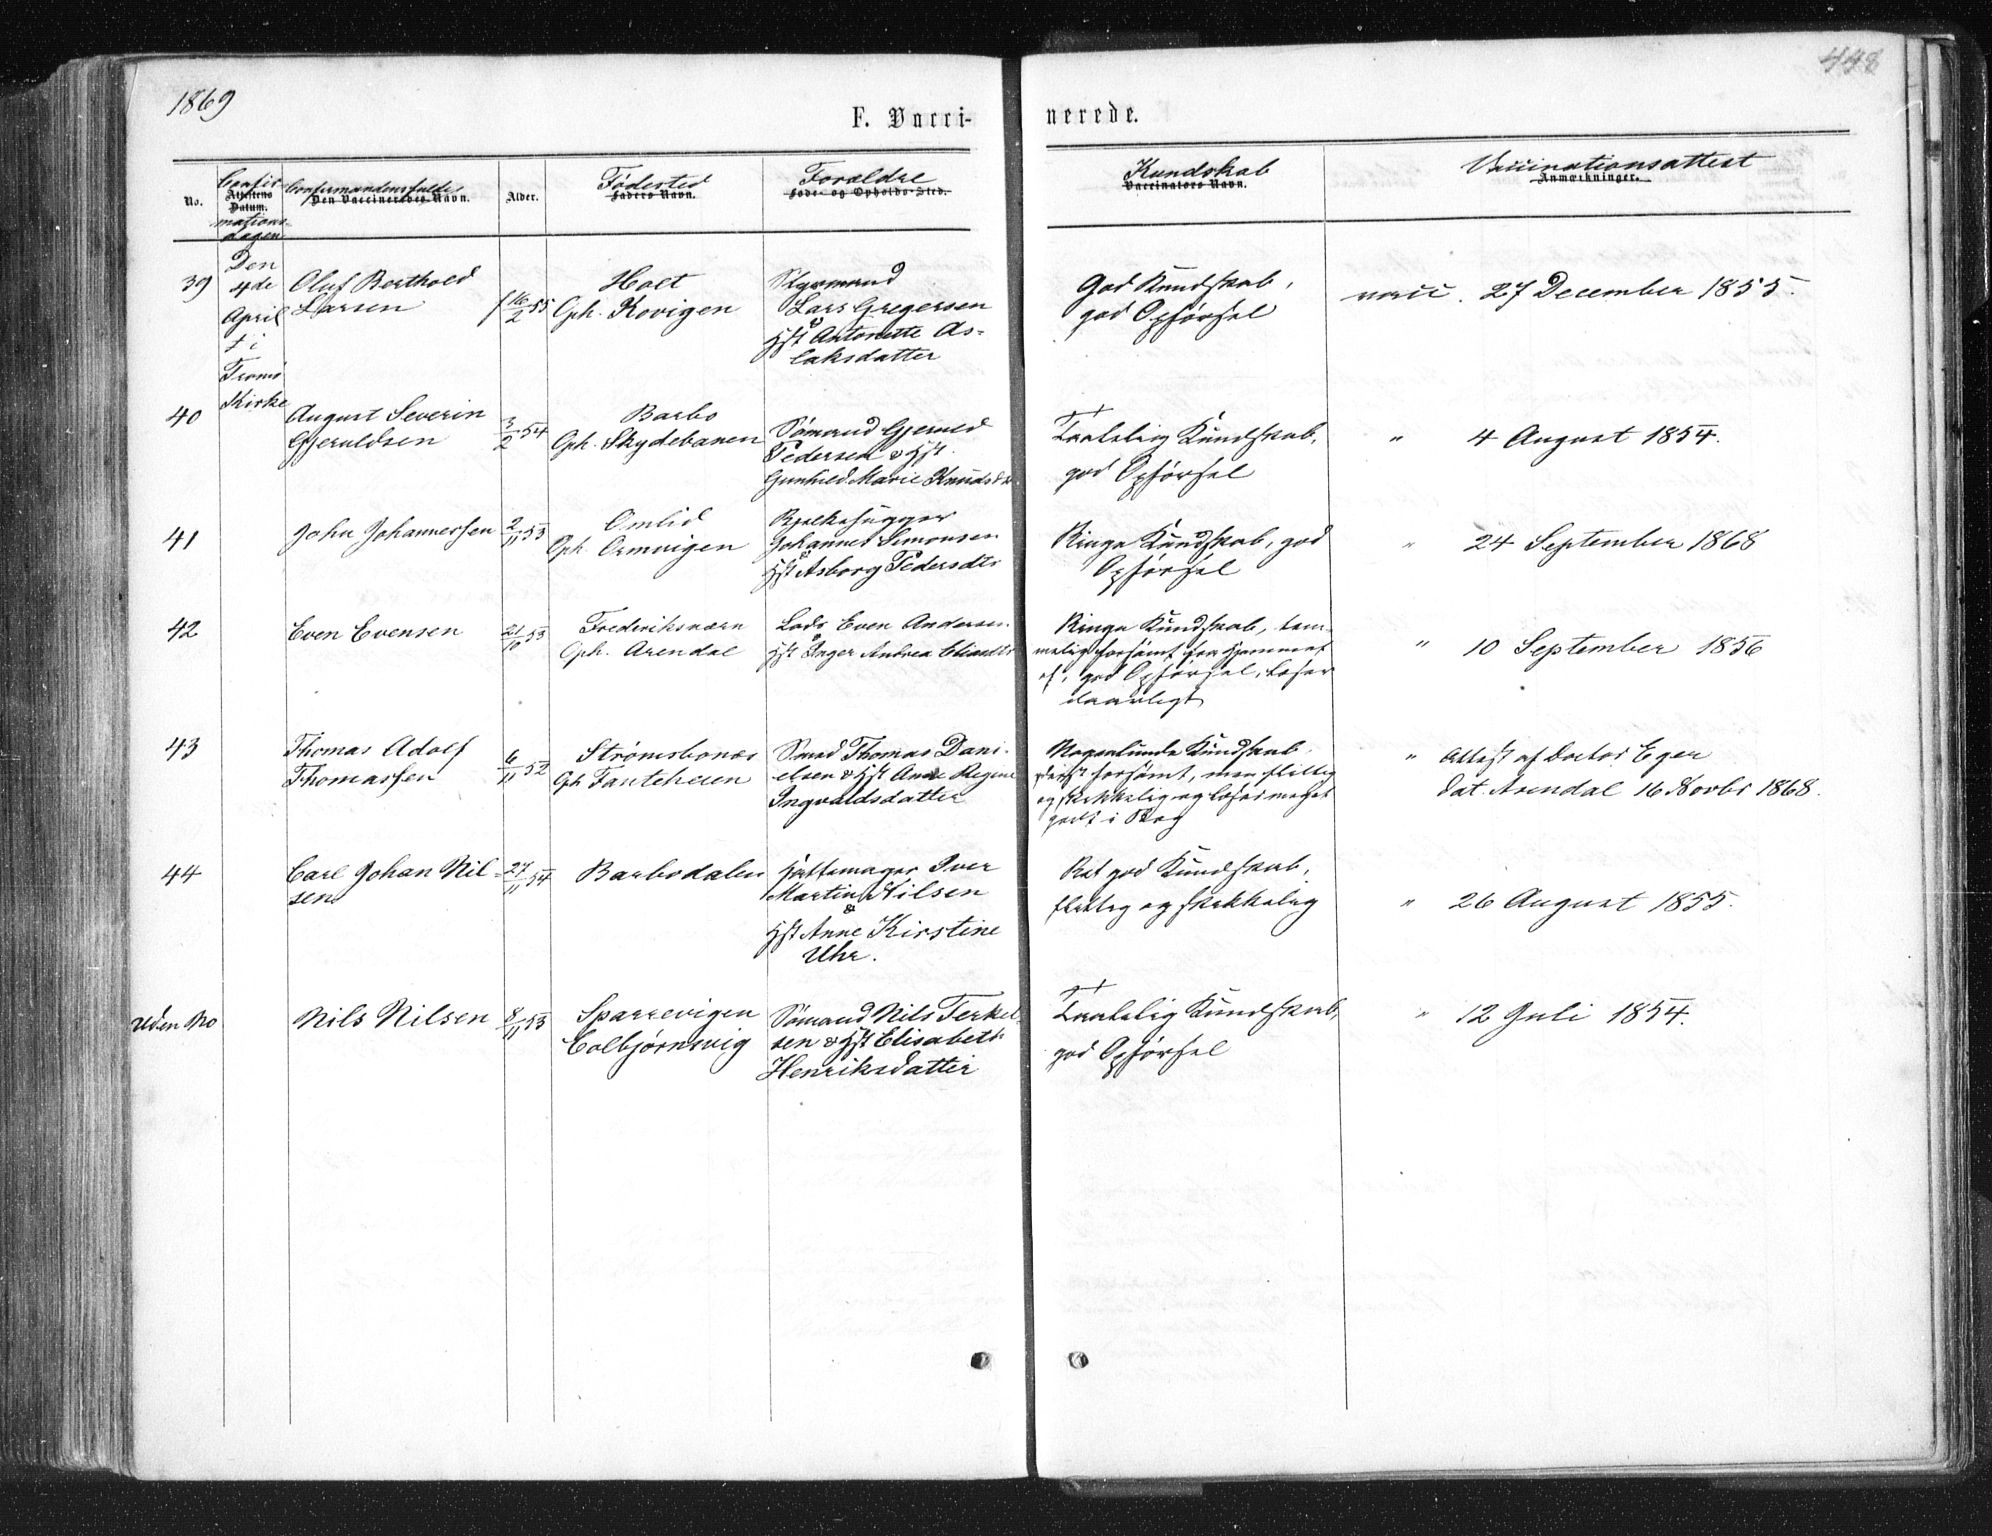 1869
448
F. Vacci-
nerede.
No.
Confir-
Attestens
Datum.
mations-
dagen
Confirmandens fulde
Den Vaccineredes Navn.
Alder.
Fødested
Faders Navn.
Forældre
Føde- og Opholds-Sted.
Kundskab
Vaccinators Navn.
Vaccinationsattest
Anmærkninger.
Den
4de
April
i
Tromø
Kirke
39
Oluf Berthold
Larsen
f 16/2 55
Holt
Oph. Kovigen
Styrmand
Lars Gregersen
&
Hst Antonette As-
laksdatter
God Kundskab,
god Opførsel
vacc. 27 December 1855.
40
August Severin
Gjeruldsen
3/2 54
Barbo
Oph. Skydebanen
Sømand Gjeruld
Pedersen & Hst.
Gunhild Marie Knudsd
Taalelig Kundskab,
god Opførsel
" 4 August 1854.
41
John Johannessen
2/11 53
Omlid
Oph. Ormvigen
Bjelkehugger
Johannes Simonsen
&
Hst Asborg Pedersdtr
Ringe Kundskab, god
Opførsel
" 24 September 1868
42
Even Evensen
21/10 53
Frederiksværn
Oph. Arendal
Lods Even Andersen
&
Hst Inger Andrea
Ringe Kundskab, tem-
melig forsømt fra Hjemmet
af, god Opførsel, læser
daarligt
" 10 September 1856
43
Thomas Adolf
Thomassen
6/11 52
Strømsbonæs
Oph Fanteheien
Smed Thomas Dani-
elsen & Hst Anne Regine
Ingvaldsdatter
Nogenlunde Kundskab,
forsømt, men flittig
og skikkelig og læser meget
godt i Bog
" Attest af Doctor Eger
dat. Arendal 16 Novbr 1868.
44
Carl Johan Nil-
sen
27/11 54
Barbodalen
Hattemager Iver
Martin Nilsen
&
Hst Anne Kirstine
Uhr.
Ret god Kundskab,
flittig og skikkelig
" 26 August 1855.
Uden No
Nils Nilsen
8/11 53
Sparrevigen
Colbjørnsvig
Sømand Nils Terkel-
sen & Hst Elisabeth
Henriksdatter
Taalelig Kundskab,
god Opførsel
" 12 Juli 1854.